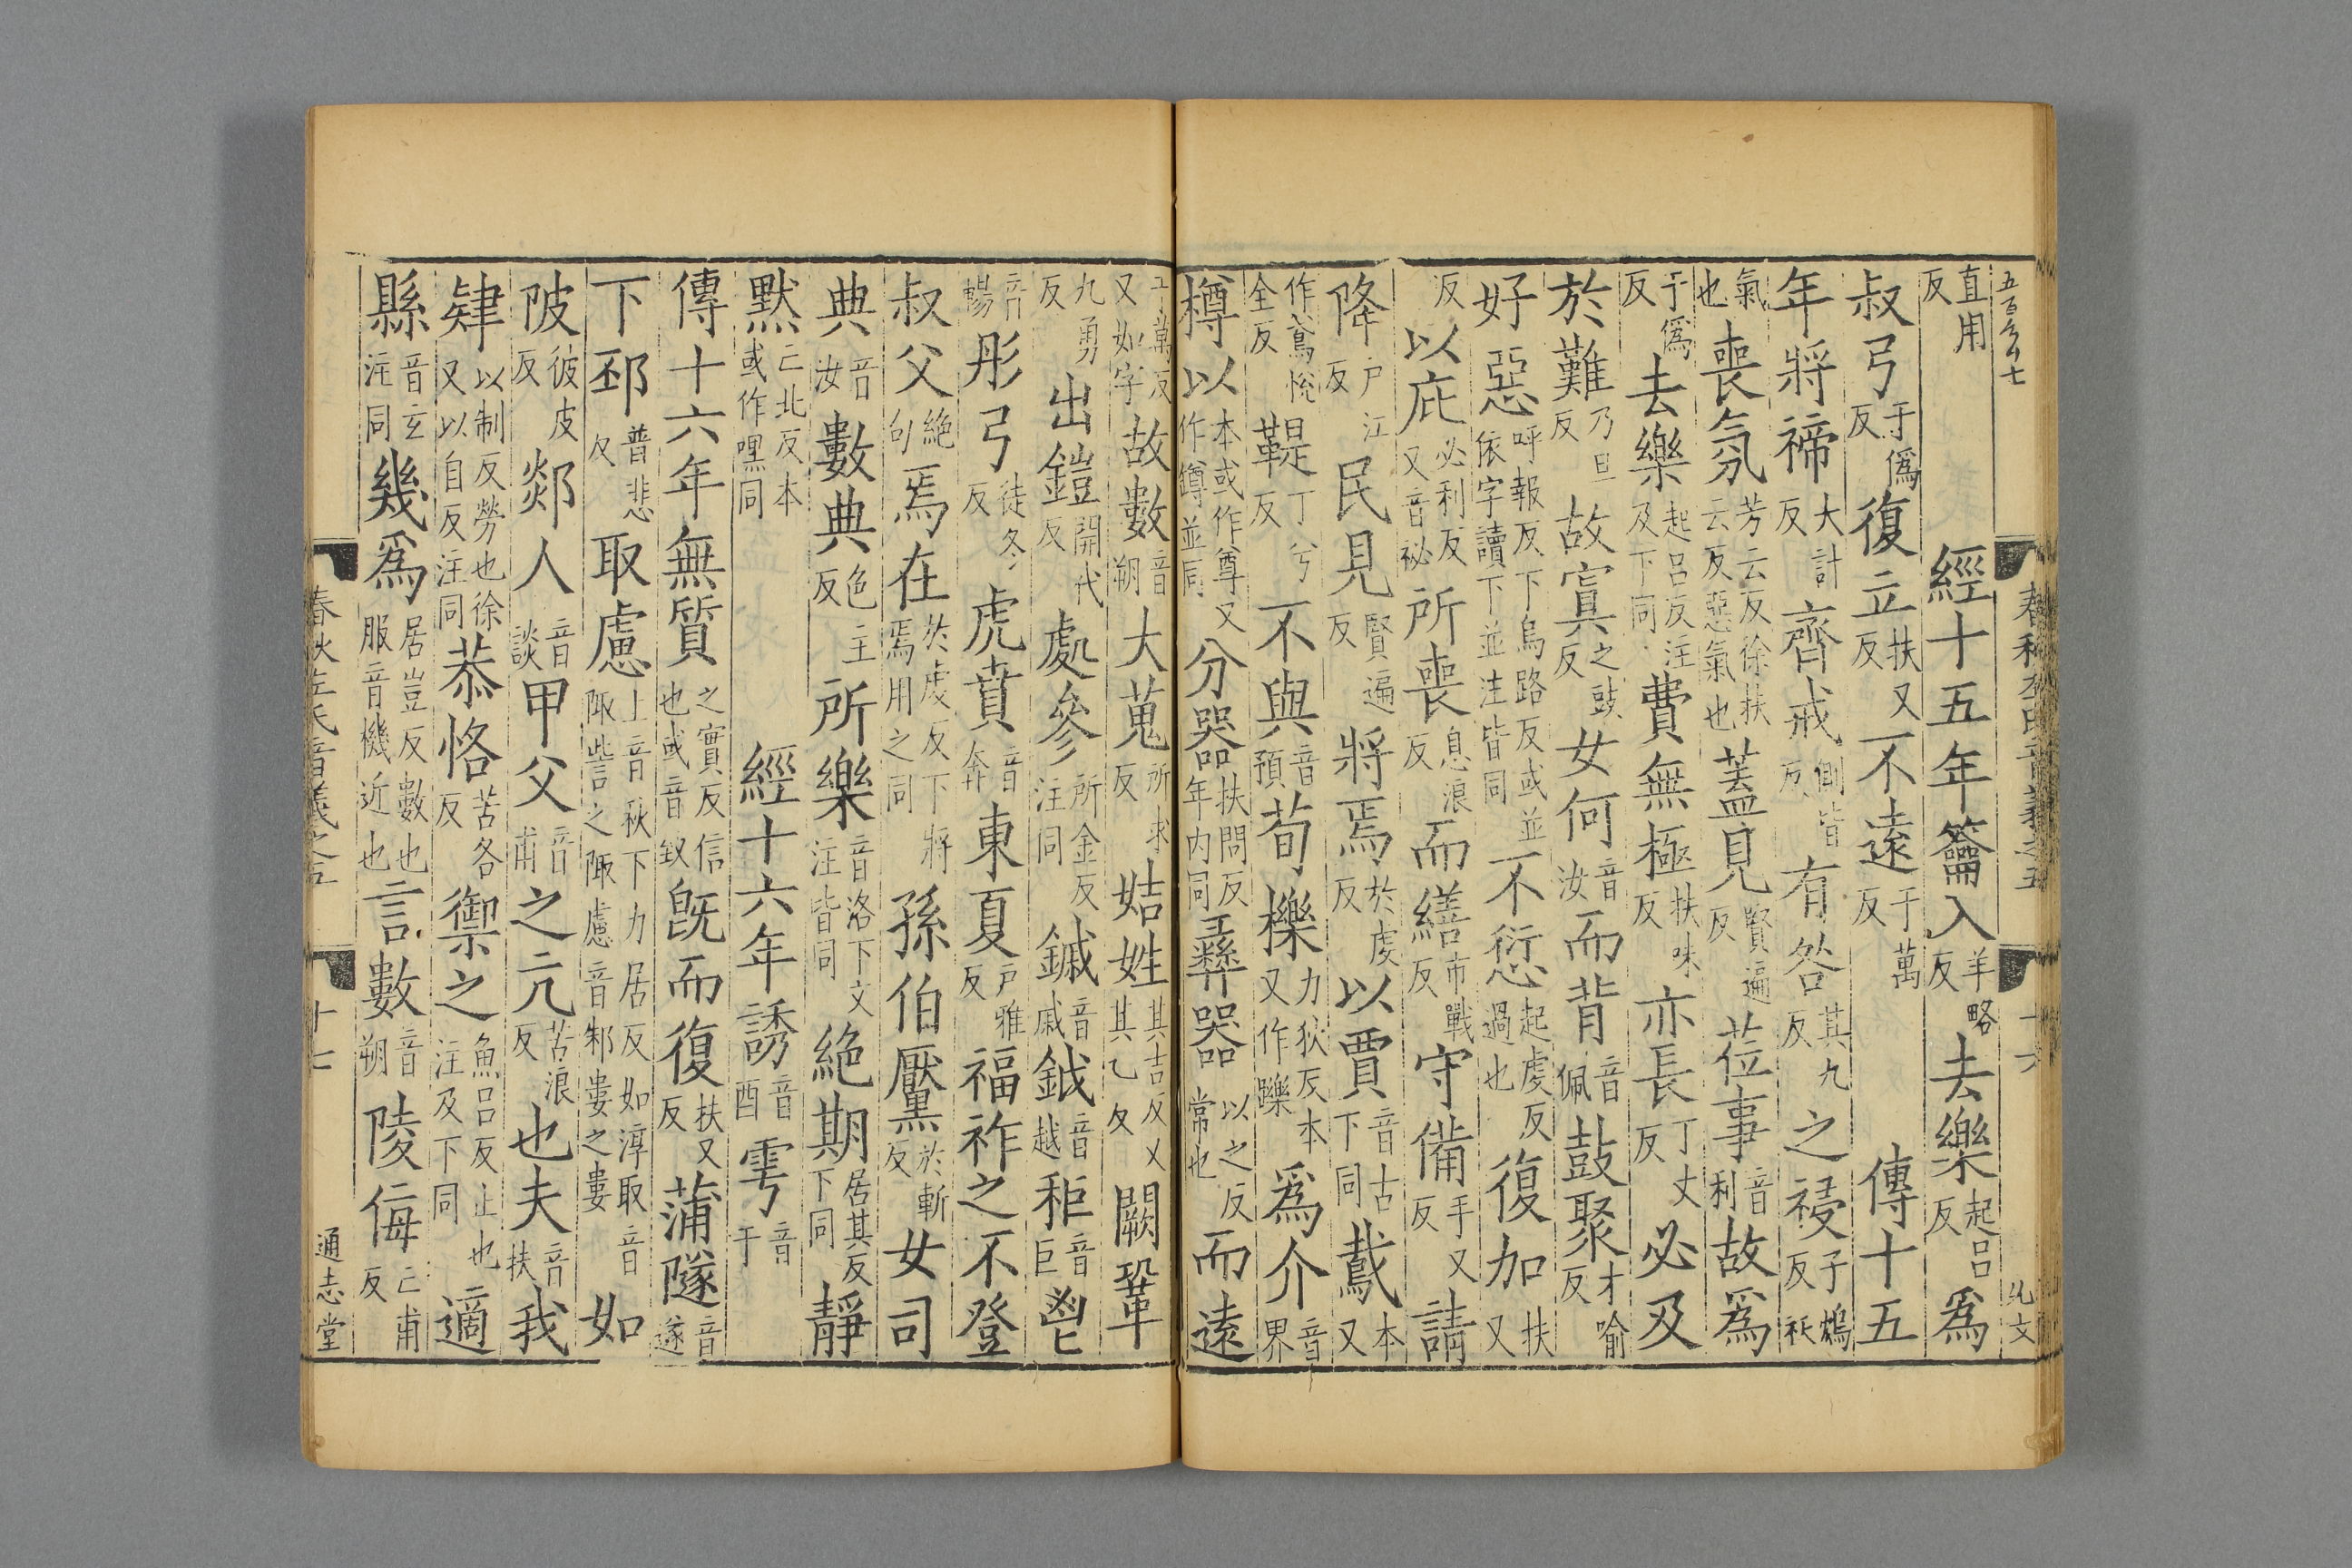 直用反　經十五年籥入羊略反去樂起呂反爲
叔弓于僞反復立扶又反不遠于萬反　傳十五
年將禘大計反齊戒側皆反有咎其九反之祲子鴆反祅
氣也喪氛芳云反徐扶云反惡氣也蓋見賢遍反莅事音利故爲
于僞反去樂起呂反注及下同費無極扶味反亦長丁丈反必及
於難乃旦反故寘之豉反女何音汝而背音佩鼓聚才喻反
好惡呼報反下烏路反或並依字讀下並注皆同不愆起虔反過也復加扶又
反以庇必利反又音祕所喪息浪反而繕市戰反守備手又反請
降户江反民見賢遍反將焉於虔反以賈音古下同䳒本又
作鳶悅全反鞮丁兮反不與音預荀櫟力狄反本又作躒爲介音界
樽以本或作尊又作鐏並同分器扶問反年内同彝器以之反常也而遠
于萬反又如字故數音朔大蒐所求反姞姓其吉反又其乙反闕鞏
九勇反出鎧開代反處參所金反注同鏚音戚鉞音越秬音巨鬯
音暢彤弓徒冬反虎賁音奔東夏户雅反福祚之不登
叔父絶句焉在於虔反下將焉用之同孫伯黶於斬反女司
典音汝數典色主反所樂音洛下文注皆同絶期居其反下同靜
默亡北反本或作嘿同　經十六年誘音酉雩音于
傳十六年無質之實反信也或音致旣而復扶又反蒲隧音遂
下邳普悲反取慮上音秋下力居反如淳取音陬訾之陬慮音邾婁之婁如
陂彼皮反郯人音談甲父音甫之亢苦浪反也夫音扶我
肄以制反勞也徐又以自反注同恭恪苦各反禦之魚呂反止也注及下同適
縣音玄注同幾爲居豈反數也服音機近也言數音朔陵侮亡甫反
春秋左氏音義之五
十七
通志堂